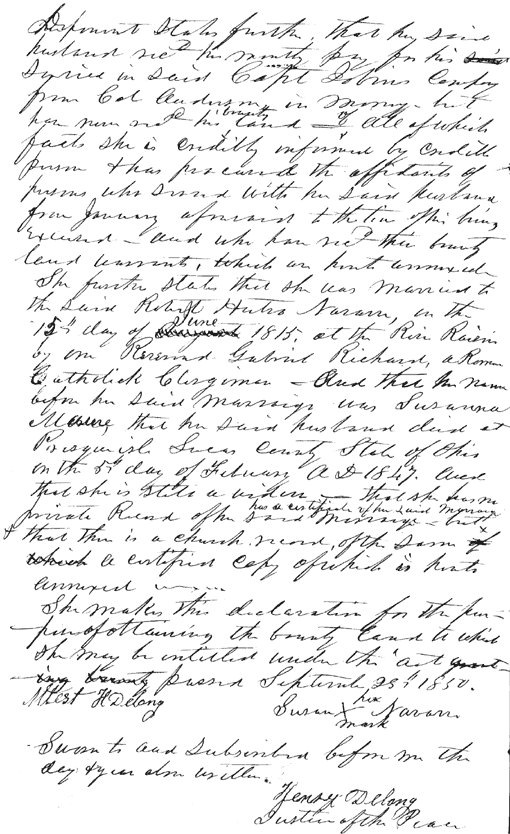 Deponent states further, that her said
husband rec'd his monthly pay for his
service in said Capt Company
from Col Anderson in money - but
has never rec'd his bounty land - All of which
facts she is credibly informed by credible
person & has procured the affidavits of
persons who served with her said husband
from January aforesaid to the time of his being
- and who have rec'd their bounty
land warrants, which are hereto annexed
She further states that she was married to
the said Robert Navarre, on the
15th day of June 1815, at the River Raisin
by one Reverend Gabriel Richard, a Roman
Catholick Clergoman - And that her name
before her said marriage was Susanna
that her said husband died at
Presquisle Lucas County State of Ohio
on the day of February A D 1847. And
that she is still a widow - that she has no
private Record of her said marriage - but
has a certificate of her said marriage
+ that there is a church record, of the same
which a certified copy of which is hereto
annexed
She makes this declaration for the pur-
pose of obtaining the bounty land to which
she may be entitled under the "act
passed September 28th 1850.
Attest H Delong
Susan her X mark Navarre
Sworn to and Subscribed before me the
day & year above written.
Henry Delong
Justice of the Peace